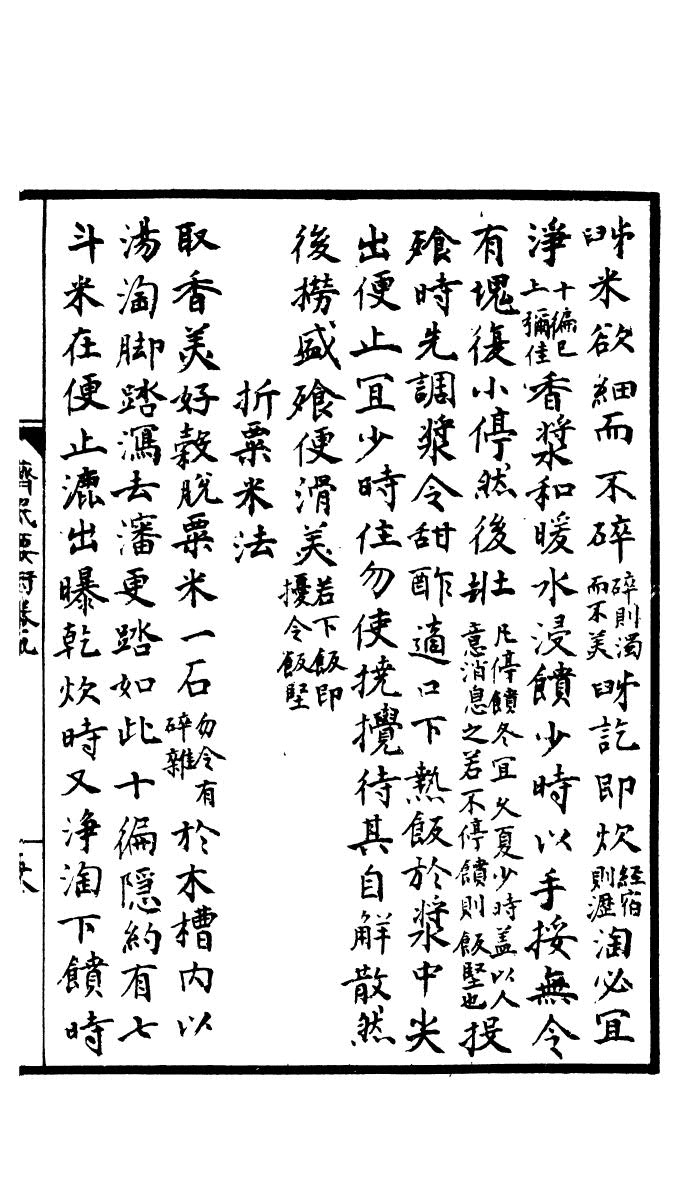 米欲細而不碎碎則濁而不美訖即炊經宿則瀝淘必宜
淨十徧已上彌佳香漿和暖水浸饙少時以手挼無令
有塊復小停然後凡停饙冬宜久夏少時蓋以人意消息之若不停饙則飯堅也投
飱時先調漿令甜酢適口下熱飯於漿中尖
出便止宜少時住勿使撓攪待其自解散然
後撈盛飱便滑美若下飯即擾令飯堅
折粟米法
取香美好穀脫粟米一石勿令有碎雜於木槽內以
湯淘脚踏瀉去瀋更踏如此十徧隱約有七
斗米在便止漉出曝乾炊時又淨淘下饙時